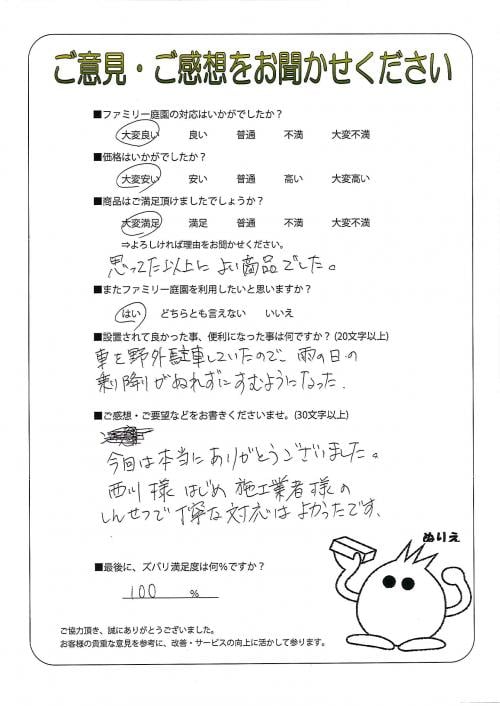 ご意見・ご感想をお聞かせください
■ファミリー庭園の対応はいかがでしたか？
大変良い 良い 普通 不満 大変不満
■価格はいかがでしたか？
大変安い 安い 普通 高い 大変高い
■商品はご満足頂けましたでしょうか？
大変満足 満足 普通 不満 大変不満
⇒よろしければ理由をお聞かせください。
思ってた以上によい商品でした。
■またファミリー庭園を利用したいと思いますか？
はい どちらとも言えない いいえ
■設置されて良かった事、便利になった事は何ですか？(20文字以上)
車を野外駐車していたので、雨の日の
乗り降りがぬれずにすむようになった.
■ご感想・ご要望などをお書きくださいませ。(30文字以上)
今回は本当にありがとうございました。
西川様はじめ施工業者様の
しんせつで丁寧な対応はよかったです。
ぬりえ
■最後に、ズバリ満足度は何％ですか？
100 ％
ご協力頂き、誠にありがとうございました。
お客様の貴重な意見を参考に、改善・サービスの向上に活かして参ります。